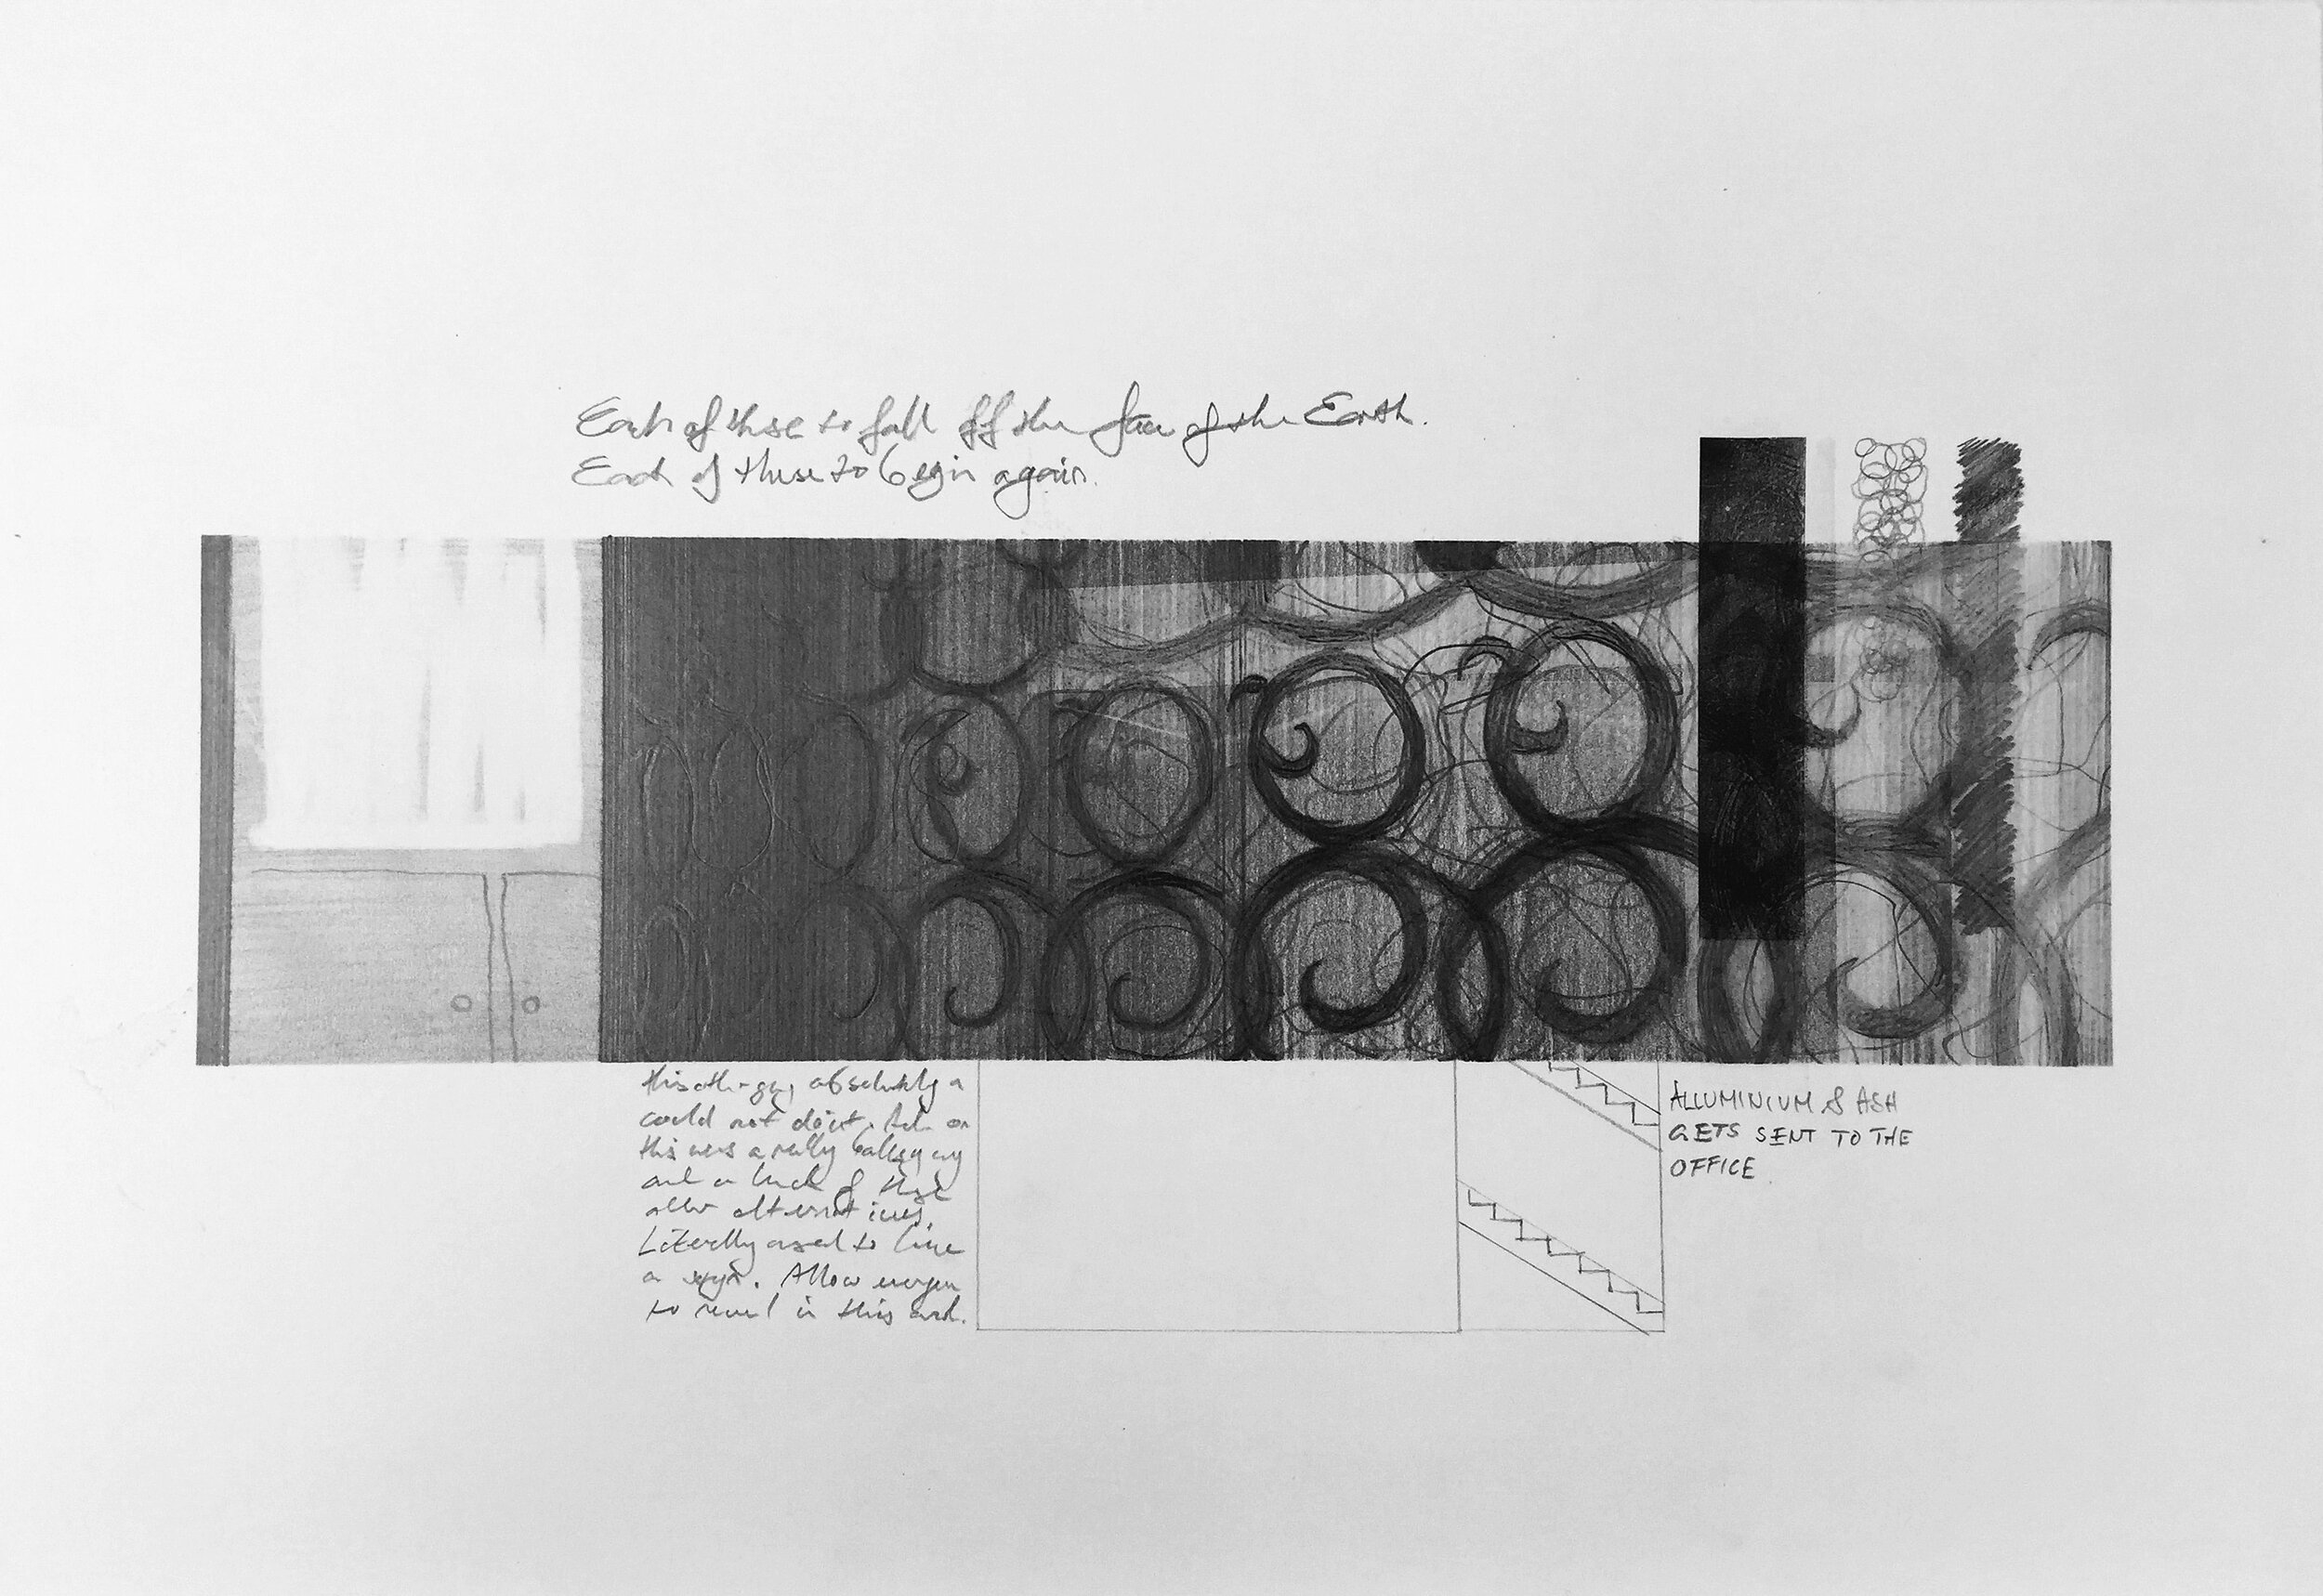 Each of these to fall off the face of the Earth.
Each of these to begin again.
this absolutely a
could not do it. on
this was a really
and a lack of these
allow alternatives.
Literally used to line
a Allow
to in this
ALLUMINIUM & ASH
GETS SENT TO THE
OFFICE